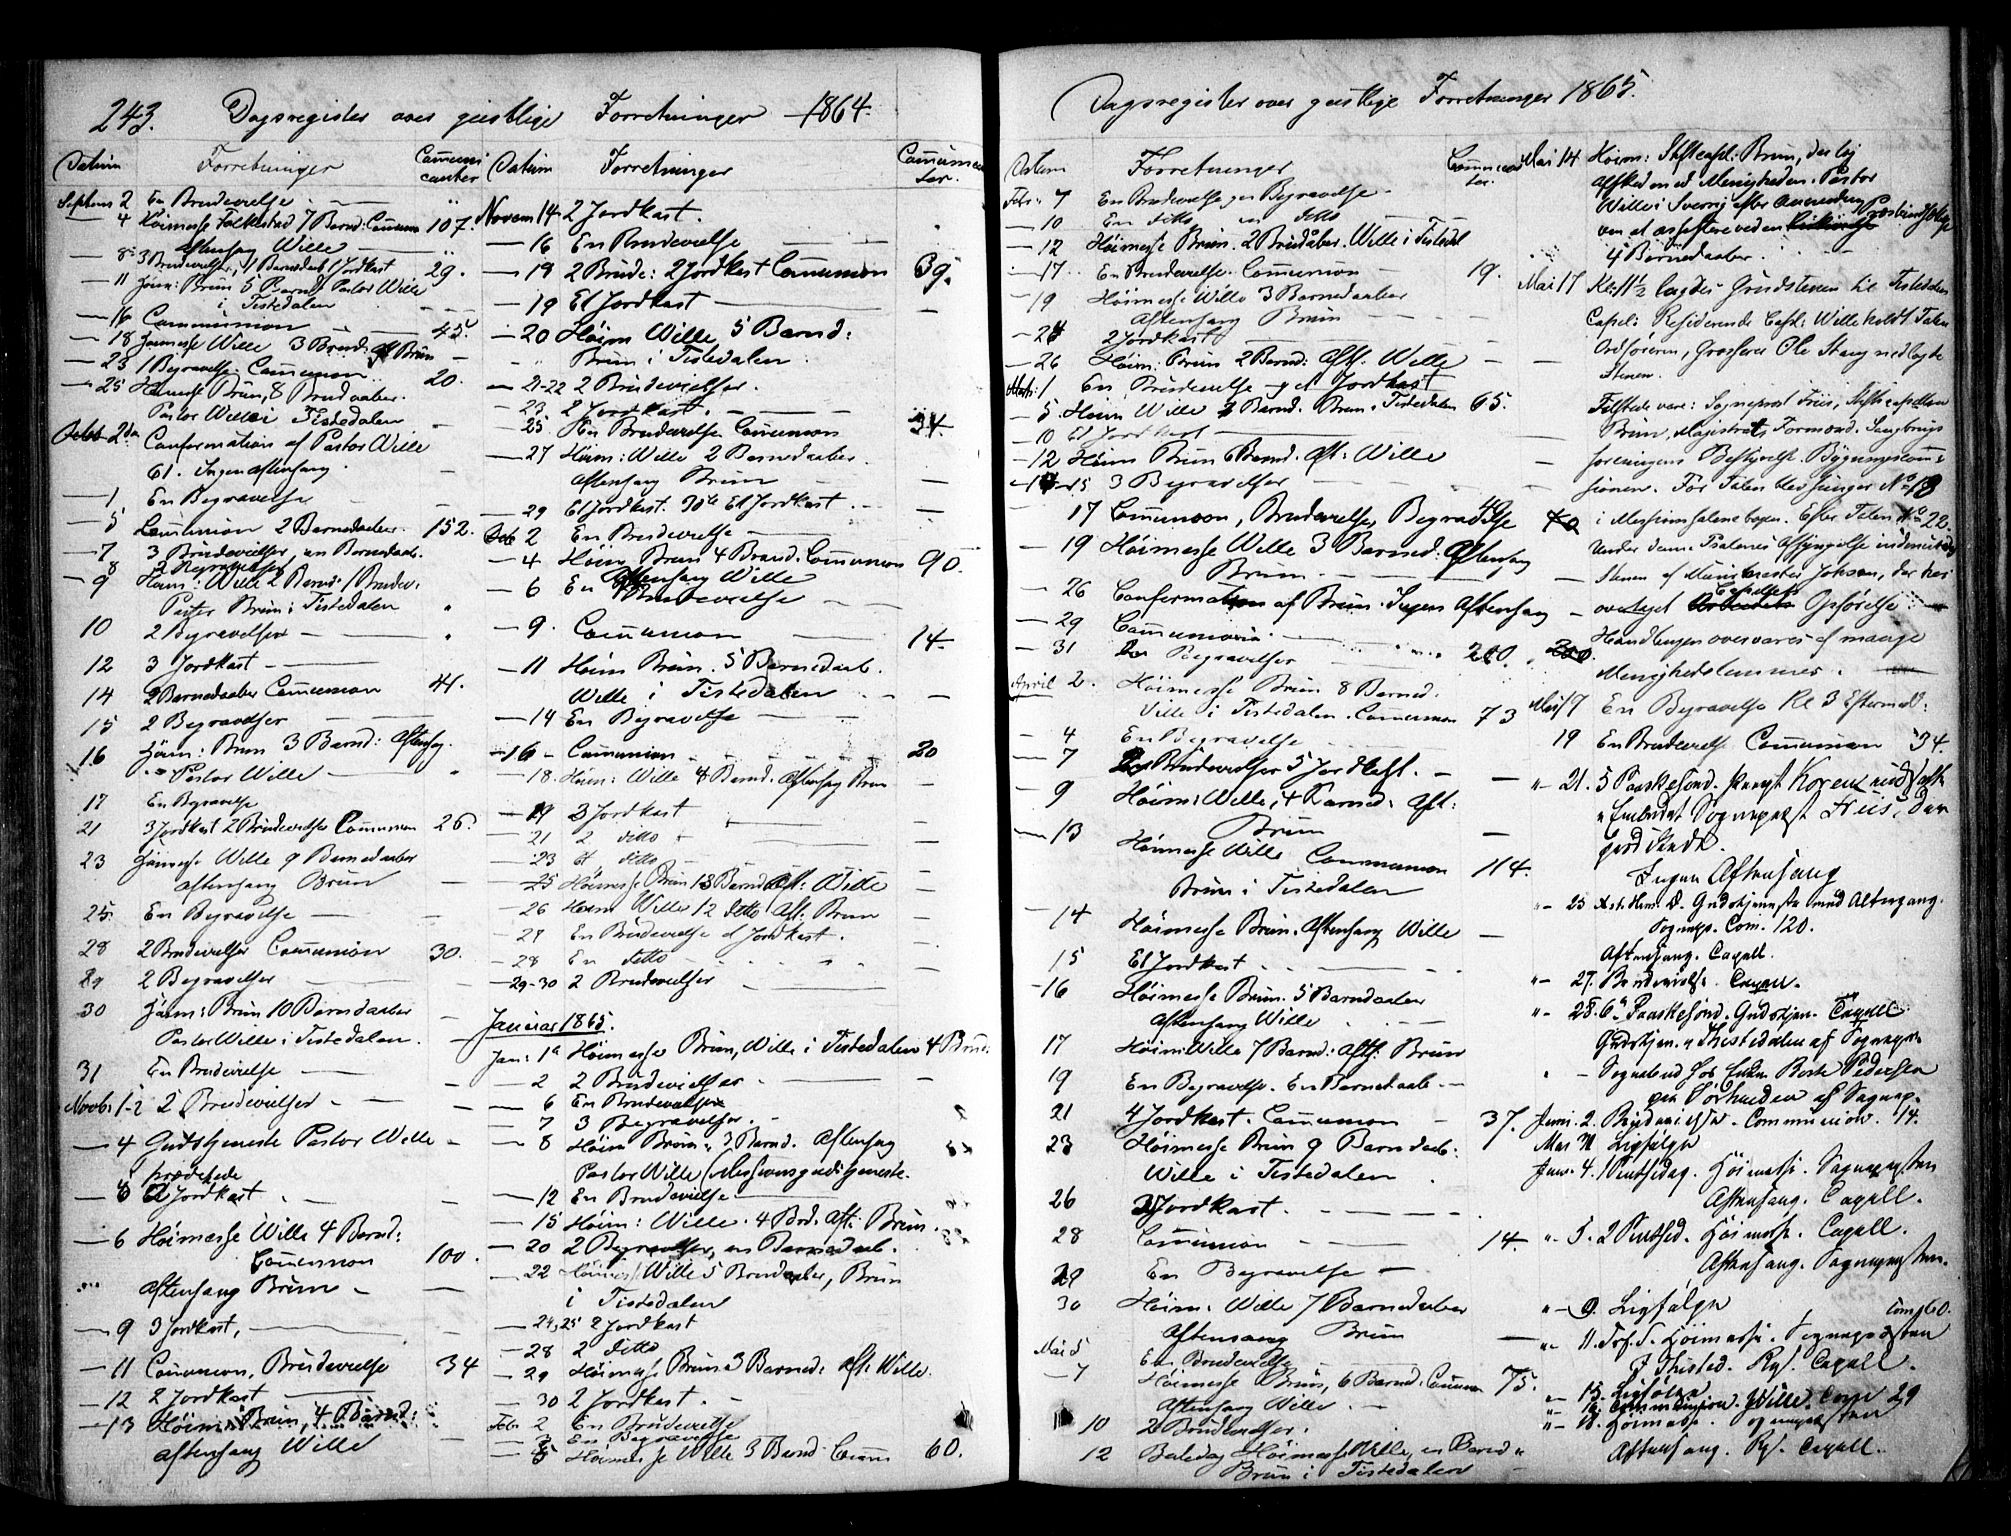 243. Dagsregister over geistlige Forretninger 1864.
Datum Forretninger Communicanter
Septem 2 En Brudevielse
4 Høimesse Folkestad 7 Barnd. Commun 107.
Aftensang Wille
8 3 Brudevielser, 1 Barnedaab 1 Jordkast 29.
11 Høim: Brun 5 Barnd Pastor Wille
i Tistedalen
16 Communion 45.
18 Høimesse Wille 3 Barnd: Aft Brun
23 1 Begravelse Communion 20.
25 Høimesse Brun, 8 Brudaaber.
Pastor Wille i Tistedalen
Octob 2den Confirmation af Pastor Wille
61. Ingen aftensang.
1 En Begravelse
5 Communion 2 Barnedaaber. 152.
7 3 Brudevielser, en Barnedaab.
8 2 Begravelser
9 Høim: Wille 2 Barnd: 1 Brudev:
Pastor Brun i Tistedalen
10 2 Begravelser
12 3 Jordkast
14 2 Barnedaaber Communion 41.
15 2 Begravelser
16 Høim: Brun 3 Barnd: Aftensag.
Pastor Wille
17 En Begravelse
21 3 Jordkast 2 Brudevielser Communion 26.
23 Høimesse Wille 9 Barnedaaber
aftensang Brun
25. En Begravelse
28 2 Brudevielser Communion 30.
29 2 Begravelser
30 Høim: Brun 10 Barnedaaber
Pastor Wille i Tistedalen.
31 En Brudevielse
Novb: 1-2 2 Brudevielser
4 Gudstjeneste Pastor Wille
prædikede
6 2 Jordkast
6 Høimesse Wille 4 Barnd:
Communion 100.
Aftensang Brun
9 3 Jordkast,
11 Communion, Brudevielse 34
12 2 Jordkast
13 Høimes Brun, 4 Barnd:
Aftensang Wille
Datum Forretninger Communicanter.
Novem 14. 2 Jordkast.
16 En Brudevielse
18 2 Brude: 2 Jordkast Communion 39.
19 Et Jordkast
20 Høim Wille, 5 Barnd:
Brun i Tistedalen.
21-22 2 Brudevielser.
23 2 Jordkast.
25 En Brudevielse Communion 34.
27 Høim: Wille 2 Barnedaaber
Aftensang Brun
29 Et Jordkast. 30te Et Jordkast.
Deb 2 En Brudevielse
4 Høim Brun 4 Brand. Communion 90.
Aftensang Wille
6 En Brudevielse
9. Communion 14.
11 Høim Brun. 5 Barnedaab.
Wille i Tistedalen
14 En Begravelse
16 Communion 20
18. Høim: Wille 4 Barnd. Aftensag Brun
19 3 Jordkast
21 2 ditto
23 et ditto
25 Høimesse Brun 13 Barnd Aft: Wille
26 Høim Wille 12 ditto Aft: Brun
27 En Brudevielse et Jordkast.
28 En ditto
29-30 2 Brudevielser
Januar 1865.
Jan: 1te Høimesse Brun, Wille i Tistedalen 4 Brud:
2 2 Brudevielser.
6 En Brudevielse
7 3 Begravelser.
8 Høim Brun 3 Barnd. Aftensag
Pastor Wille (Missionsgudstjeneste.
12 En Brudevielse
15 Høim: Wille. 4 Brd. Aft: Brun.
20 2 Begravelser, en Barnedaab.
22 Høimesse Wille 5 Barndaaber, Brun
i Tistedalen
24,25 2 Jordkast
28 2 ditto
29 Høimesse Brun 3 Barned: Aft: Wille.
30 2 Jordkast.
Febr 2 En Brudevielse
3 En Begravelse
5 Høimesse Wille 3 Barnd Comm 60.
Dagsregister over geistlige Forretninger 1865.
Datum Forretninger Communicanter.
Febr: 7 En Brudevielse, en Begravelse
10 En ditto en ditto
12 Høimesse Brun. 2 Brudåber. Wille i Tistedal
17 En Brudevielse. Communion 19.
19 Høimesse Wille 3 Barnedaaber
Aftensang Brun
24 2 Jordkast
26 Høim: Brun 2 Barnd: Aft: Wille
Marts: 1 En Brudevielse et Jordkast
5. Høim Wille 2 Barnd. Brun i Tistedalen 65.
10 Et Jordkast
12 Høim Brun 6 Barnd. Aft: Wille
14-15 3 Begravelser
17 Communion, Brudevielse, Begravelse 40
19 Høimesse Wille 3 Barned: Aftensag
Brun
26 Confirmation af Brun. Ingen Aftensag
29 Communion.
31 Begravelser 200.
April 2. Høimesse Brun 8 Barned.
Wille i Tistedalen. Communion 73
4 En Begravelse
7 Brudevielser 5 Jordkast.
9 Høim: Wille, 4 Barned: Aft:
Brun
13 Høimesse Wille Communion 114.
Brun i Tistedalen
14 Høimesse Brun. Aftensang Wille
15 Et Jordkast
16 Høimesse Brun. 5 Barndaaber
Aftensang Wille
17 Høim: Wille 7 Barnd: Aft: Brun
19 En Begravelse. En Barnedaab
21 4 Jordkast. Communion 37.
23 Høimesse Brun 9 Barndaab:
Wille i Tistedalen
26 3 Jordkast.
28 Communion 14.
29 En Begravelse
30 Høim: Wille 7 Barnedaaber
Aftensang Brun
Mai 5 En Brudevielse
7 Høimesse Brun, 6 Barnd. Commun 75.
Aftensang Wille.
10 2 Brudevielser.
12 Bededag Høimesse Wille, en Barnd
Brun i Tistedalen
Mai 14 Høim: Stiftcapl: Brun, der tog
Afsked med Menigheden. Pastor
Wille i Sverrig efter Anmodning
om at assistere ved en Præsteindsættelse
4 Børnedaaber.
Mai 17 Kl: 11½ lagdes Grundstenen til Tistedalens
Capel: Residerende Capl: Wille holdt Talen
Ordføreren, Grosserer Ole Stang nedlagde
Stenen.
Tilstede vare: Sogneprest Friis, Stiftscapellan
Brun, Magistrats Formænd. Sangbrugs
foreningens Bestyrelse. Bygningscom-
sionen. Før Talen blev sunget No 18
i Missionssalmebogen. Efter Talen No 22.
Under denne Psalmes Afsyngelse indmuredes
Stenen af Muurmester Johsen, der har
overtaget Capellets Opførelse
Handlingen overvares af mange
Menighedslemmer.
Mai 17 En Begravelse Kl 3 Eftermd:
19 En Brudevielse Communion 34.
21. 5 Paaskesönd. Provst Koren indsatte
i Embedet Sognepræst Friis, den
Ingen Aftensang
25 Xsti Him. D. Gudstjeneste med Altergang.
Sognepr. Com. 120.
Aftensang. Capell.
27. Brudevielse. Capell.
28. 6te Paaskesönd. Gudstjen. Capell
Gudstjen. i Thistedalen af Sognepr.
Sognebud hos Enken Berte Pedersen
af Sognep.
Juni 2. Brudevielser. Communion. 14.
Mai 31 Ligfølge
Juni 4. 1 Pintsedag. Høimesse. Sognepresten
Aftensang. Capell.
5. 2 Pintsed. Høimesse. Capell.
Aftensang. Sognepresten.
9. Ligfølge
11. Tref. S. Høimesse. Sognepresten Com 60.
I Thisted. Rs. Capell.
15. Ligfølge
16. Communion. Wille. Com 29
18. Høimesse. Sognepresten
Aftensang. Rs. Capell.